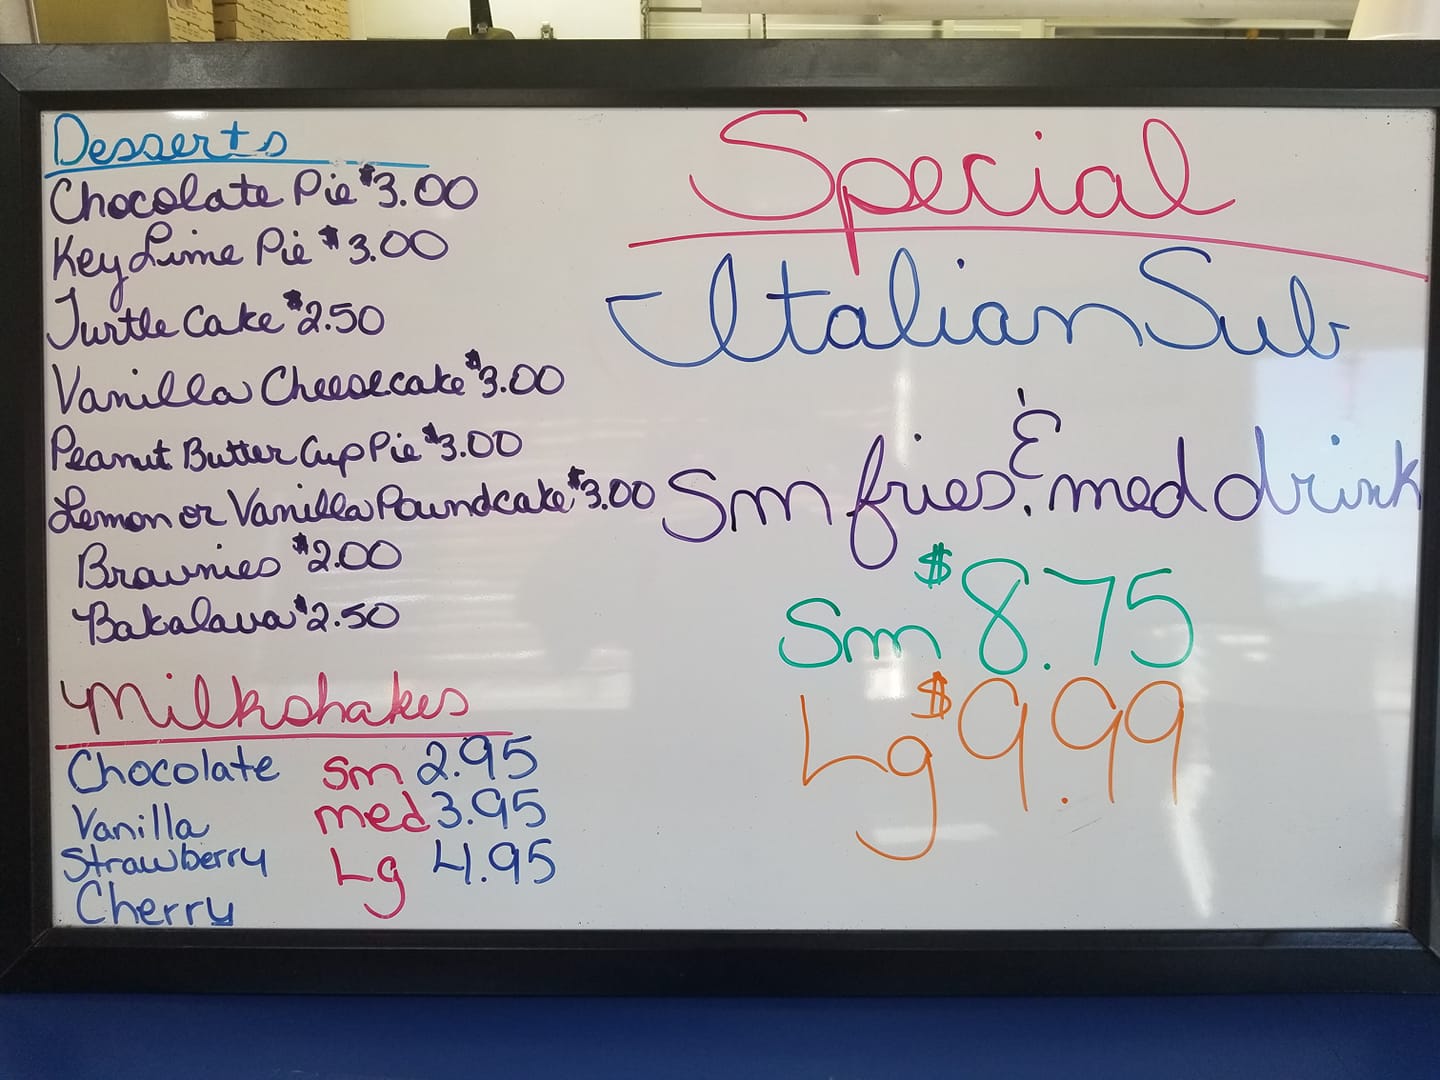 Desserts
Chocolate Pie $3.00
Key Lime Pie $3.00
Turtle Cake $2.50
Vanilla Cheesecake $3.00
Peanut Butter Cup Pie $3.00
Lemon or Vanilla Poundcake $3.00
Brownies $2.00
Bakalava $2.50
Milkshakes
Chocolate sm 2.95
Vanilla med 3.95
Strawberry Lg 4.95
Cherry
Special
Italian Sub
Sm fries & med drink
Sm $8.75
Lg $9.99